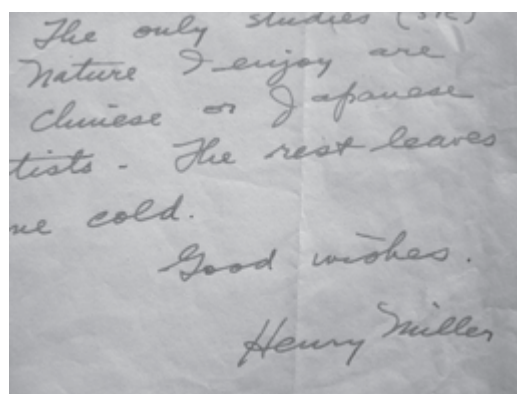 The only studies (sic)
Nature I enjoy are
Chinese or Japanese
tists - The rest leaves
me cold.
Good wishes.
Henry Miller